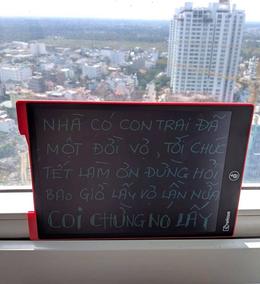 NHÀ CÓ CON TRAI ĐÃ
MỘT ĐỜI VỢ, TỐI CHÚC
TẾT LÀM ƠN ĐỪNG HỎI
BAO GIỜ LẤY VỢ LẦN NỮA
COI CHỪNG NÓ LẤY